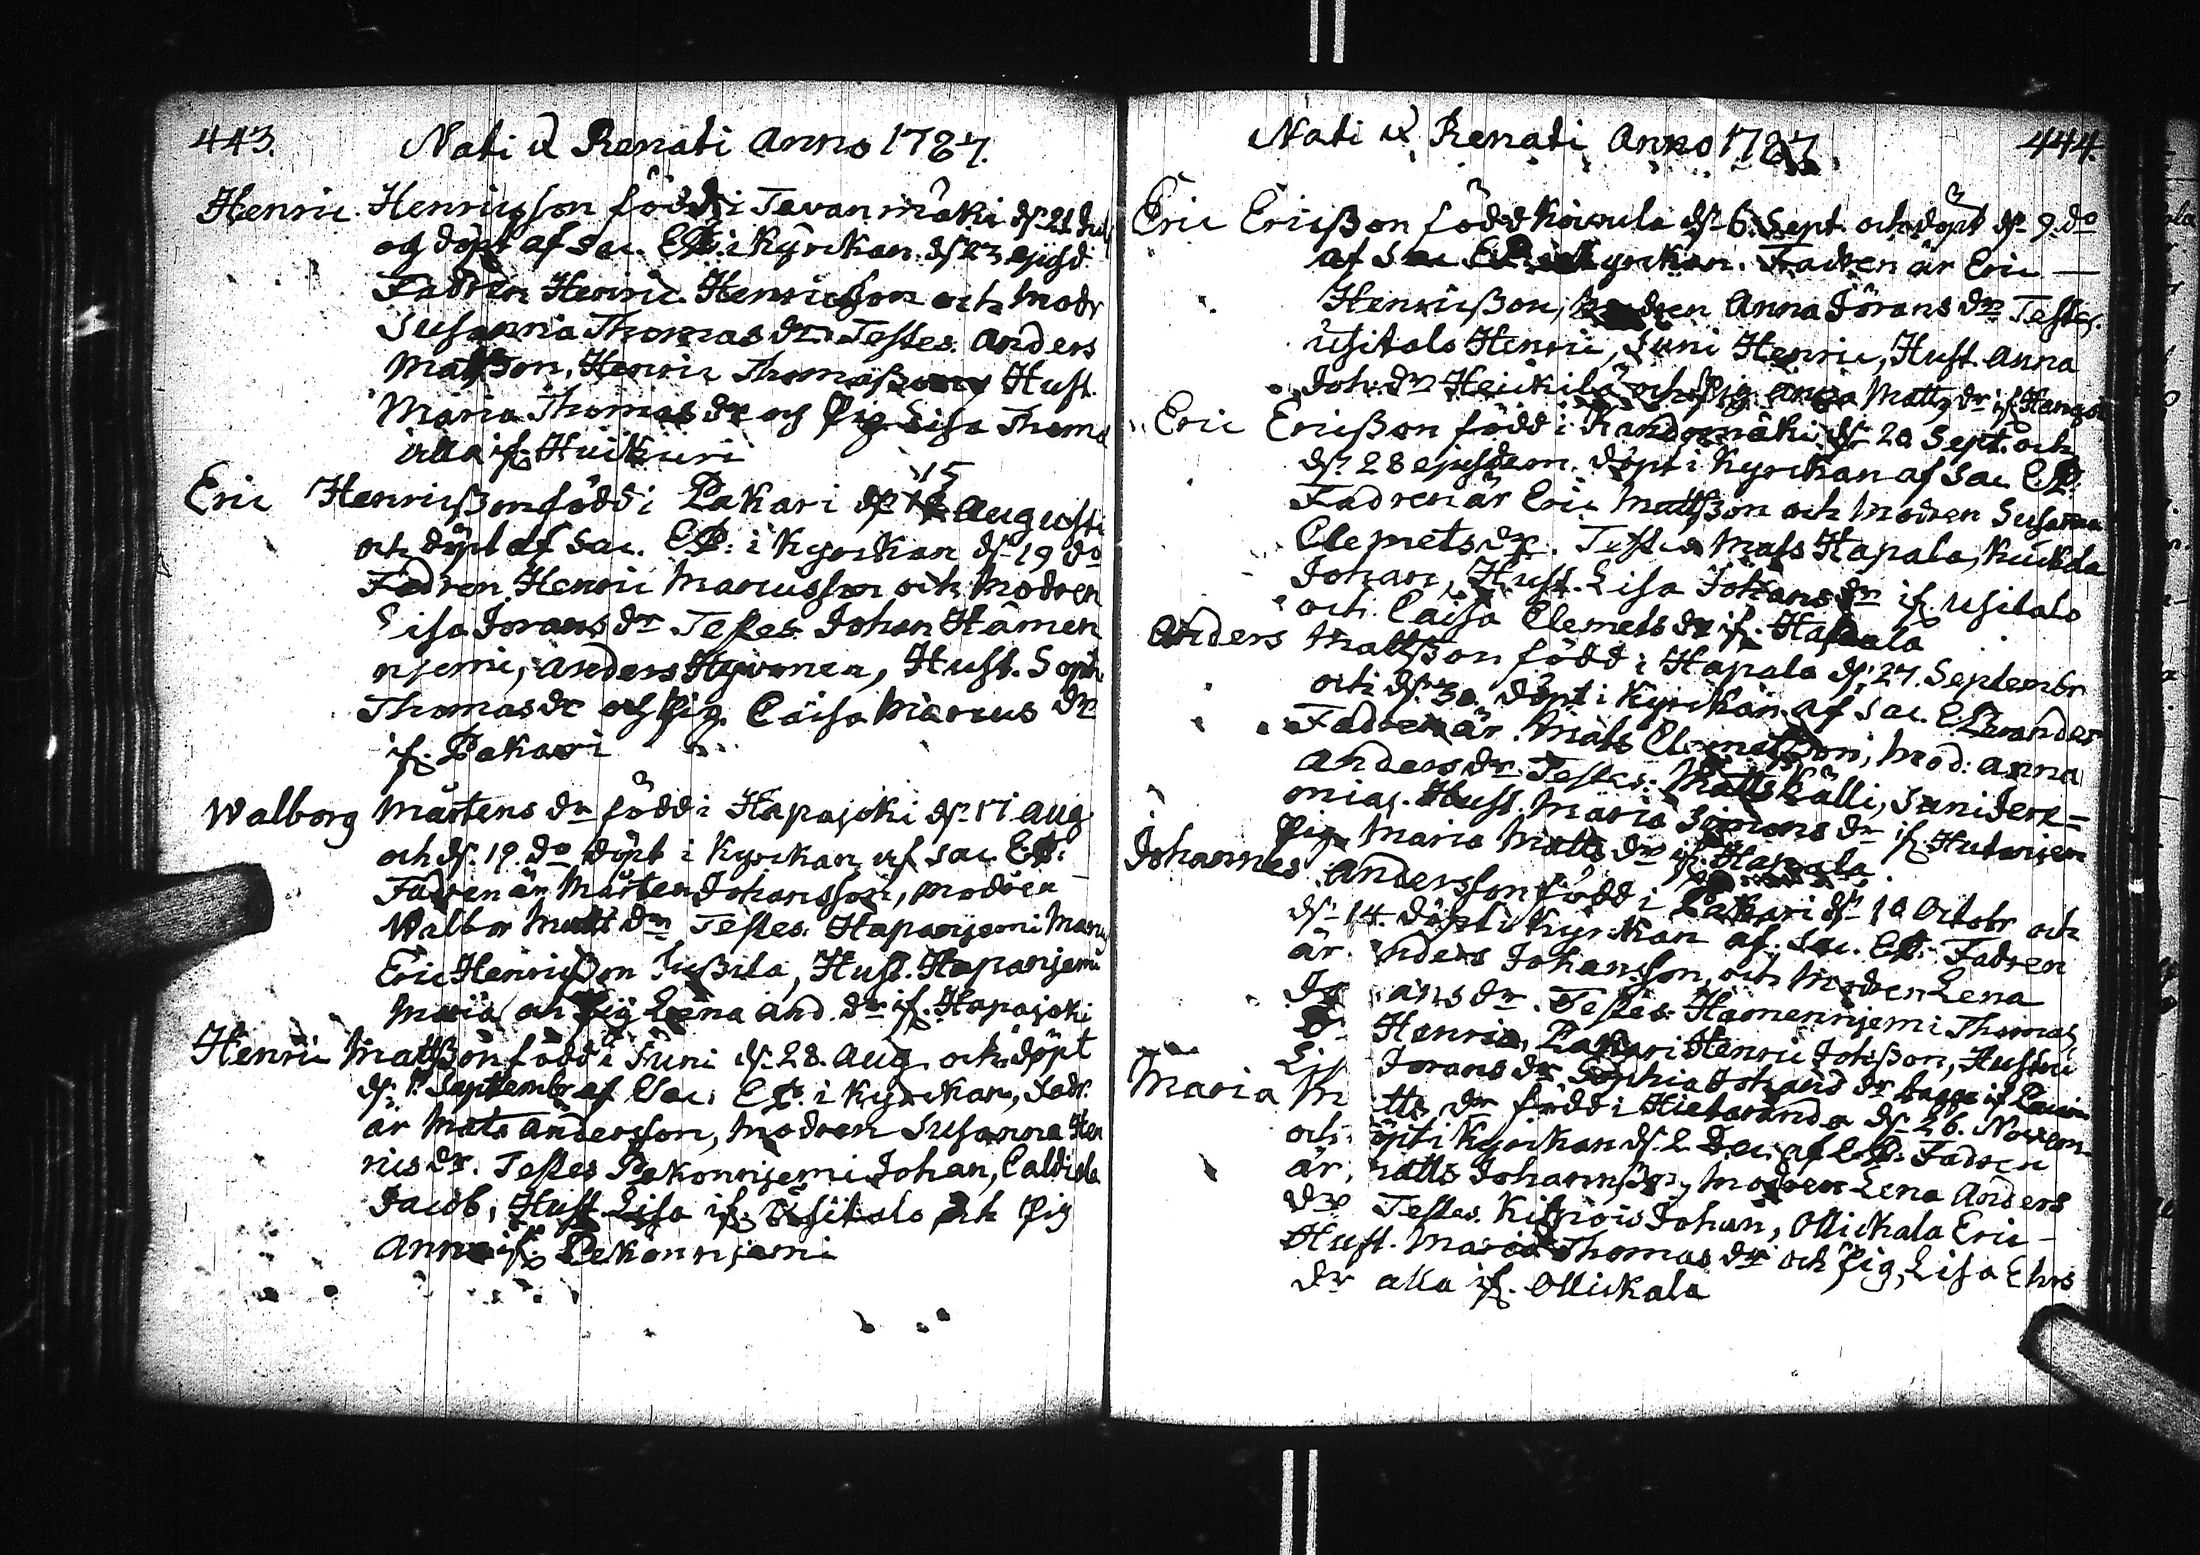 443.
Nati & Renati Anno 1787.
Henric Henricsson född i Tavanmäki d. 21 Jul
og döpt af Sac. EP. i Kyrckan. d. 23 ejusd
Fadren Henric Henricsson och Modr
Susanna Thomas dr. Testes. Anders
Matsson, Henric Thomasson Hust.
Maria Thomas dr og Pig Lisa Thoms
alla if. Huikuri
Eric Henricsson född i Pakari d. 15 Augusti
och döpt af Sac. EP: i Kyrckan d. 19 do
Fadren Henric Marcusson och Modren
Lisa Jorans dr Testes Johan Hämen
njemi, Anders Hyvonen, Hust. Soph
Thomas dr og Pig. Caisa Marcus dr
if. Pakari
Walborg Mårtens dr född i Hapajoki d. 17 Aug
och d. 19. do döpt i Kyrckan af Sac EP:
Fadren är Mårten Johansson, Modren
Walbor Matt dr Testes. Hapanjemi
Eric Henricsson Jussila, Hust. Hapanjemi
Maria och Pig Lena And. dr if. Hapajoki
Henric Mattsson född i Suni d. 28. Aug. och döpt
d. 1. Septembr af Sac. EP. i Kyrckan, Fadr.
är Mats Andersson, Modren Susanna Hen
rics dr. Testes Pekonnjemi Johan,
Jacob, Hust. Lisa if. Usitalo och Pig
Anna if. Pekonnjemi
Nati & Renati Anno 1787.
444.
Eric Ericsson född Koivula d. 6. Sept. och döpt d. 9. do
af Sac EP i Kyrckan. Fadren är Eric
Henricsson, Modren Anna Jörans dr Testes.
Usitalo Henric, Suni Henric, Hust. Anna
Joh. dr Heickilä och Pig. Anna Matts dr if.
Eric Ericsson född i d. 20 Sept. och
d. 28 ejusdem. döpt i Kyrckan af Sac EP.
Fadren är Eric Mattsson och Modren Susanna
Clemets dr. Testes Mats Hapala,
Johan, Hust. Lisa Johans dr if. Usitalo
och Caisa Clemets dr if. Hapala
Anders Mattsson född i Hapala d. 27. Septembr
och d. 30. döpt i Kyrckan af Sac. E. Perander
Fadren är Mats Clemetsson, Mod: Anna
Anders dr. Testes. Matts Källi, Suni Jere=
mias. Hust. Maria Simons dr if.
Pig. Maria Matts dr if. Hapala.
Johannes Andersson född i Pakari d. 10 Octobr och
d. 14. döpt i Kyrckan af. Sac. EP. Fadren
är nders Johansson, och Modren Lena
ans dr. Testes Hämennjemi Thomas
Henric, Pakari Henric Johsson, Hustru
Jorans dr Sophia Johans dr
Maria M tts dr född i Hietaranda d. 26. Novem
och öpt i Kyrckan d. 2 Dec. af EP. Fadren
är, Matts Johannsson, Modren Lena Anders
dr Testes. Johan, Ollickala Eric
Hust. Maria Thomas dr och Pig. Lisa
dr alla if. Ollickala